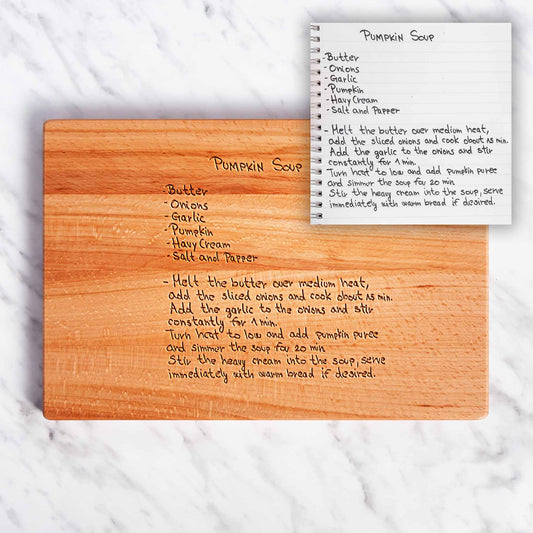 Pumpkin Soup
-Butter
-Onions
-Garlic
-Pumpkin
-Havy Cream
-Salt and Papper
-Melt the butter over medium heat,
add the sliced onions and cook obout 15 min.
Add the garlic to the onions and stir
constantly for 1 min.
Turn heat to low and add pumpkin puree
and simmur the soup for 20 min
Stir the heavy cream into the soup, serve
immediately with warm bread if desired.
Pumpkin Soup
-Butter
-Onions
-Garlic
-Pumpkin
-Havy Cream
-Salt and Papper
-Melt the butter over medium heat,
add the sliced onions and cook obout 15 min.
Add the garlic to the onions and stir
constantly for 1 min.
Turn heat to low and add pumpkin puree
and simmur the soup for 20 min
Stir the heavy cream into the soup, serve
immediately with warm bread if desired.